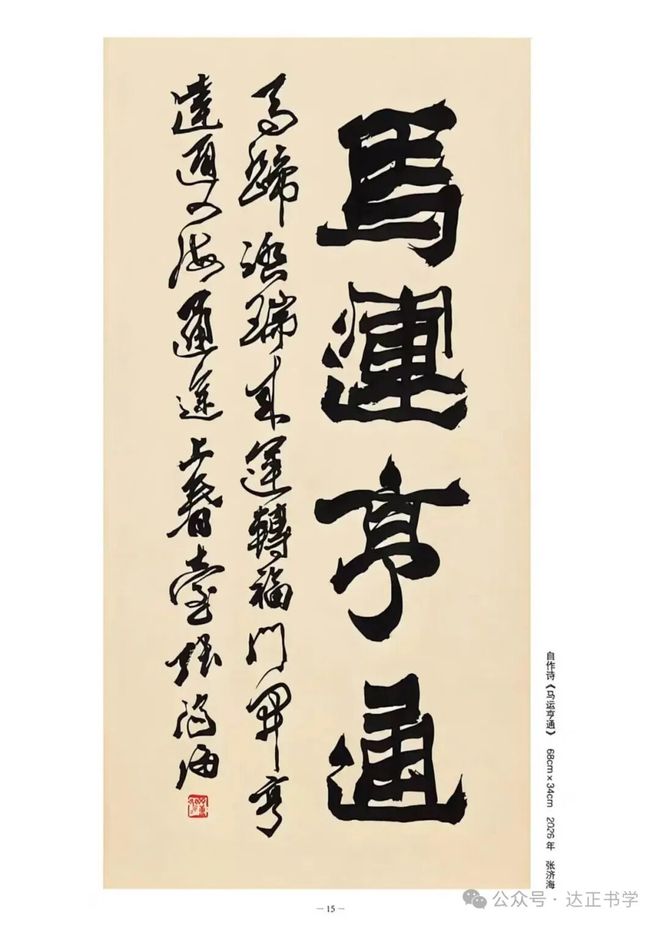 馬運亨通
馬蹄瑞來運轉福門開亨
達通四海通途上春臺張濟海
自作诗《马运亨通》 68cm×34cm 2026年 张济海
– 15 –
公众号·达正书学